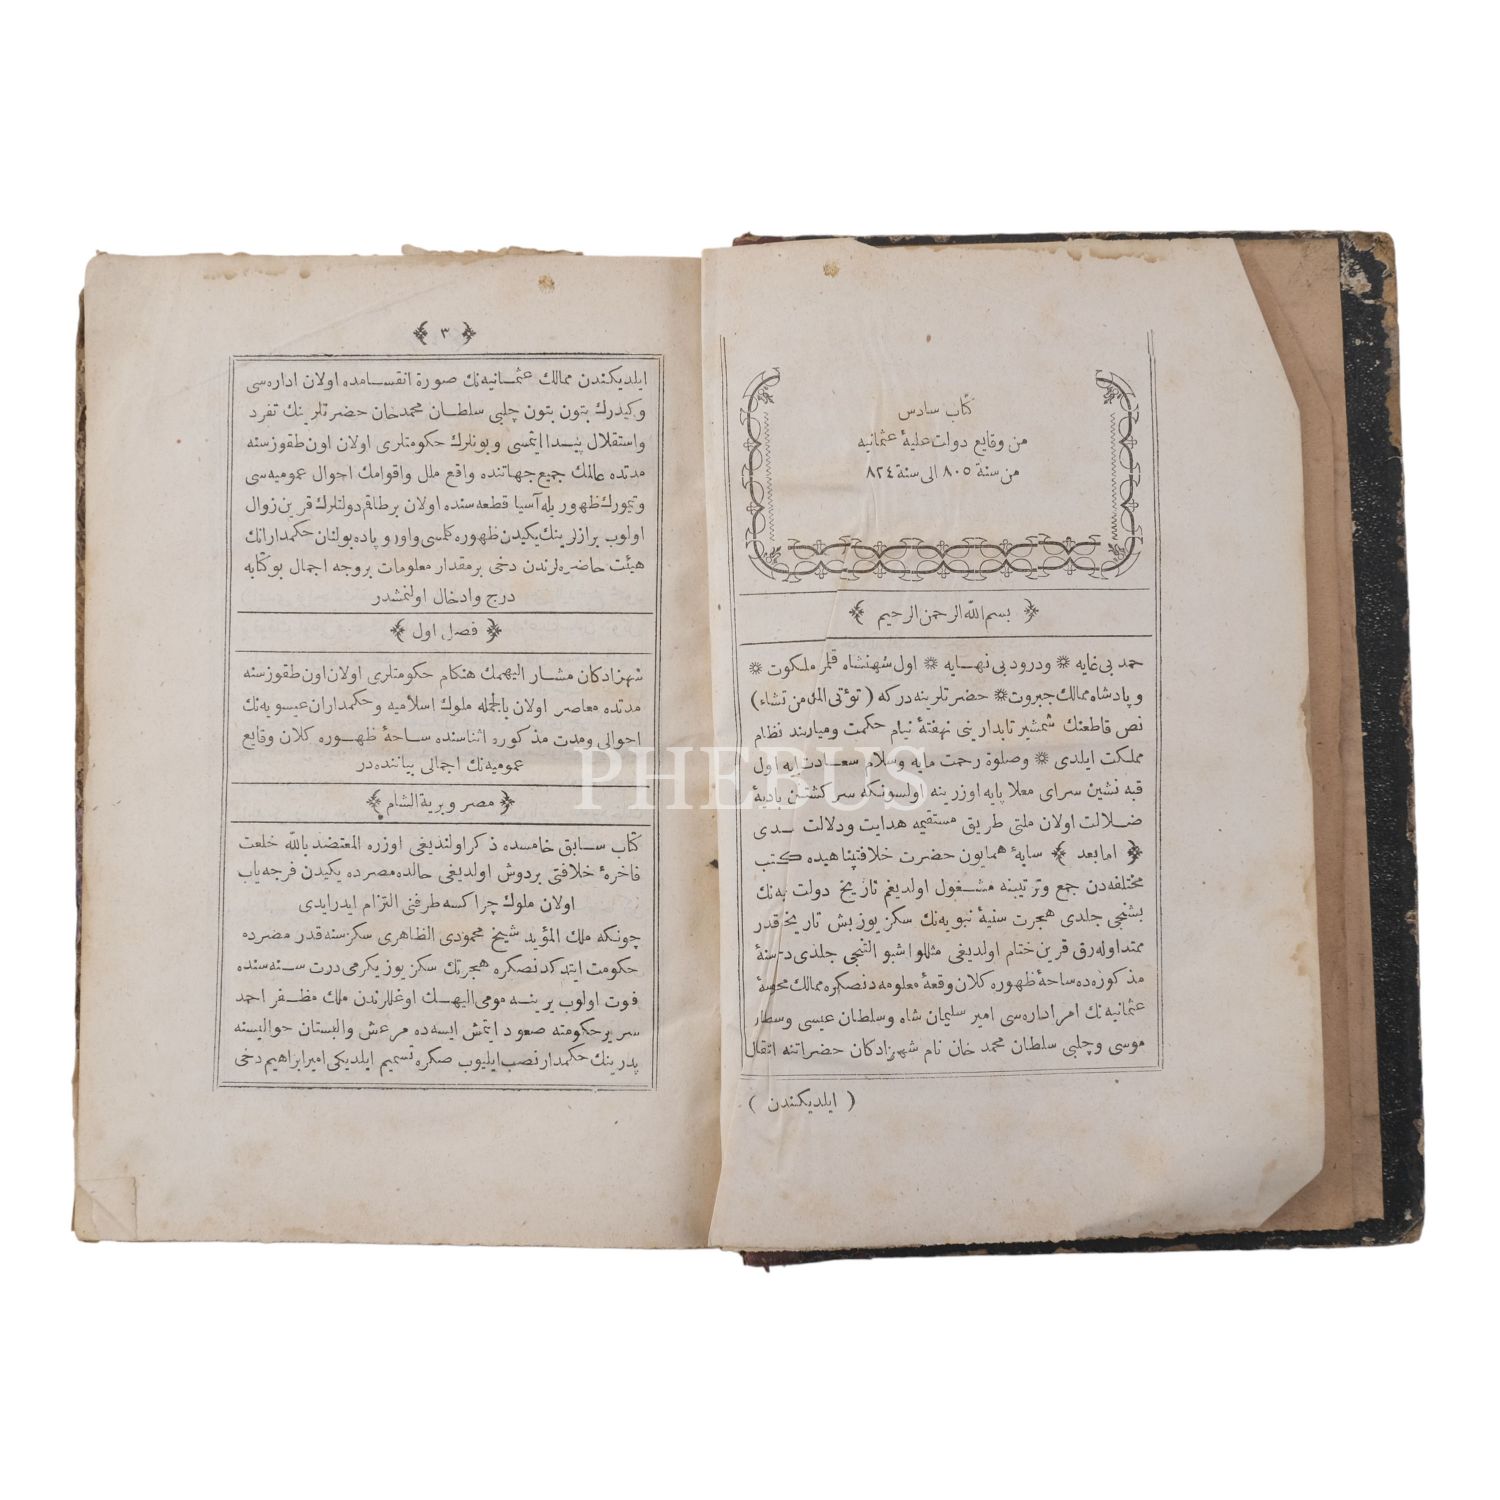 كتاب سادس
من وقايع دولت عليۀ عثمانيه
من سنة ٨٠٥ الى سنة ٨٢٤
بسم الله الرحمن الرحيم
حمد بى غايه ❊ ودرود بى نهـايه ❊ اول شهنشاه قلمرو ملكوت ❊
وپادشاه ممالك جبروت ❊ حضرتلرينه دركه (تؤتى الملك من تشاء)
نص قاطعنك شمشير تابدارينى نهفتۀ نيام حكمت وميانبند نظام
مملكت ايلدى ❊ وصلوة رحمت مايه وسلام سعادت ايه اول
قبه نشين سراى معلا پايه اوزرينه اولسونكه سركشتن باديۀ
ضـلالت اولان ملتى طريق مستقيمه هدايت ودلالت ـدى
﴿ امابعد ﴾ سايۀ همايون حضرت خلافتپناهيده كتب
مختلفه دن جمع وترتيبنه مشـغول اولديغم تاريخ دولت يه نك
بشنجى جلدى هجرت سنيۀ نبويه نك سكزيوز بش تاريخنه قدر
ممتد اوله رق قرين ختام اولديغى مثللو اشبو التنجى جلدى د سنۀ
مذكوره ده ساحۀ ظهوره كلان وقعۀ معلومه دنصكره ممالك محروسۀ
عثمانيه نك امر اداره سى امير سليمان شاه وسلطان عيسى وسلطان
موسى وچلبى سلطان محمد خان نام شهزادكان حضراتنه انتقال
( ايلديكندن )
﴿ ٣ ﴾
ايلديكندن ممالك عثمـانيه نك صورة انقسـامده اولان اداره سى
وكيدرك بتون بتون چلبى سلطـان محمدخان حضرتلرينك تفرد
واستقلال پيـدا ايتمسى وبونلرك حكومتلرى اولان اون طقوز سنه
مدتده عالمك جميع جهاتنده واقع ملل واقوامك احوال عموميه سى
وتيمورك ظهوريله آسيا قطعه سنده اولان برطاقم دولتلرك قرين زوال
اولوب برازلرينك يكيدن ظهوره كلمسى واوروپاده بولنان حكمدارانك
هيئت حاضره لرندن دخى برمقدار معلومات بروجه اجمال بوكتابه
درج وادخال اولنمشدر
﴿ فصل اول ﴾
شهزادكان مشـار اليهمك هنكام حكومتلرى اولان اون طقوز سنه
مدتده معاصر اولان بالجمله ملوك اسلاميه وحكمداران عيسويه نك
احوالى ومدت مذكوره اثناسنده ساحۀ ظهـوره كلان وقايع
عموميه نك اجمالى بياننده در
﴿ مصر وبرية الشام ﴾
كتاب سـابق خامسده ذكر اولنديغى اوزره المعتضد بالله خلعت
فاخرۀ خلافتى بردوش اولديغى حالده مصرده يكيدن فرجه ياب
اولان ملوك چراكسه طرفنى التزام ايدرايدى
چونكه ملك المؤيد شيخ محمودى الظاهرى سكز سنه قدر مصرده
حكومت ايتدكدنصكره هجرتك سكزيوزيكرمى درت سـنه سنده
فوت اولوب يرينـه مومى اليهـك اوغللرندن ملك مظـفر احمد
سرير حكومته صعود ايتمش ايسه ده مرعش والبستان حواليسنه
پدرينك حكمدار نصب ايليوب صكره تسميم ايلديكى امير ابراهيم دخى
PHEBUS